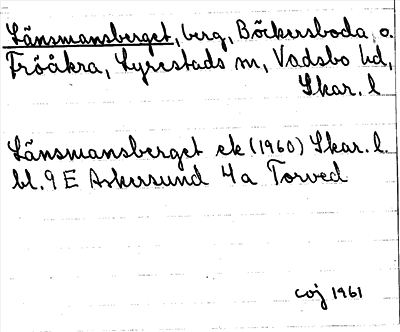 Länsmansberget, berg, Böckersboda o.
Fröåkra, Lyrestads sn, Vadsbo hd,
Skar. l
Länsmansberget ek (1960) Skar. l.
bl. 9 E Askersund 4a Torved
coj 1961